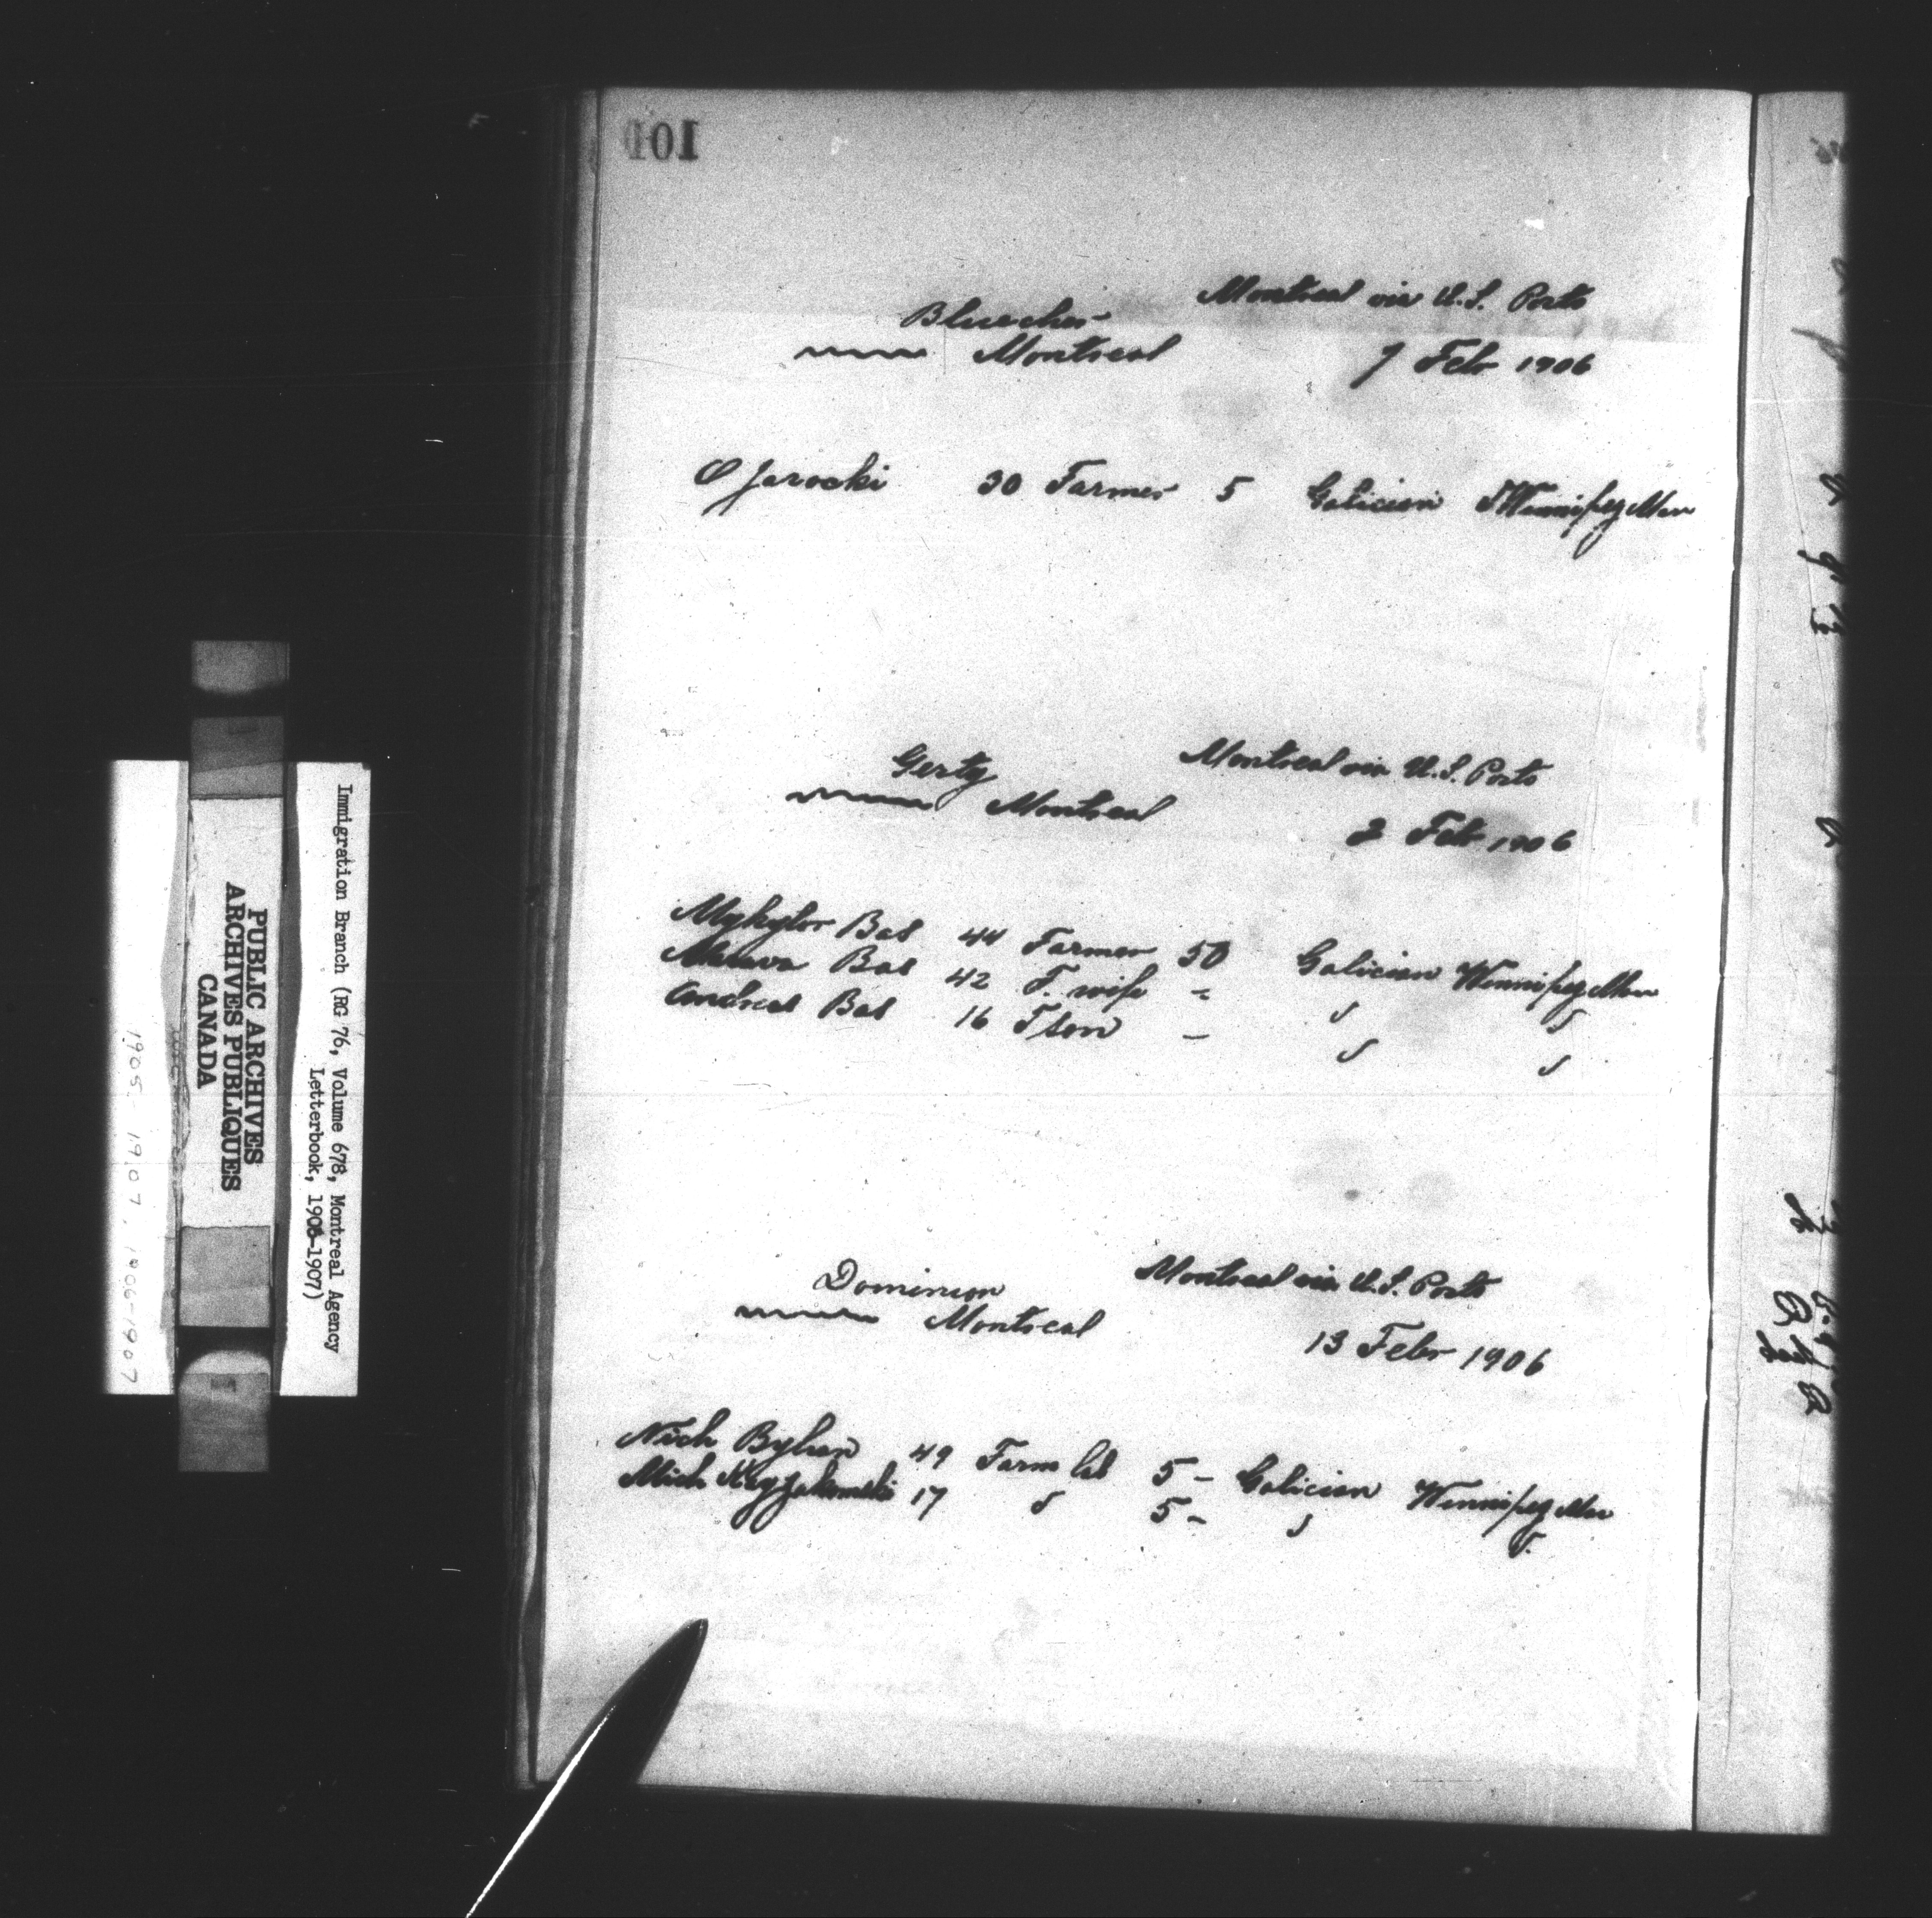 101
Montreal via U.S. Ports
Bluecher
Montreal 7 Feb 1906
O Jarocki 30 Farmer 5 Galician Winnipeg Man
Gerty Montreal via U.S. Ports
Montreal 2 Feb 1906
Mykyter Bas 44 Farmer 50 Galician Winnipeg Man
Bas 42 F. wife - " "
Andreas Bas 16 F son - " "
Dominion Montreal via U.S. Ports
Montreal 13 Febr 1906
Nich Byhun 49 Farm lab 5- Galician Winnipeg Man
Mich 17 " 5- " "
Immigration Branch (RG 76, Volume 678, Montreal Agency
Letterbook, 1906-1907)
PUBLIC ARCHIVES
ARCHIVES PUBLIQUES
CANADA
1905-1907, 1906-1907